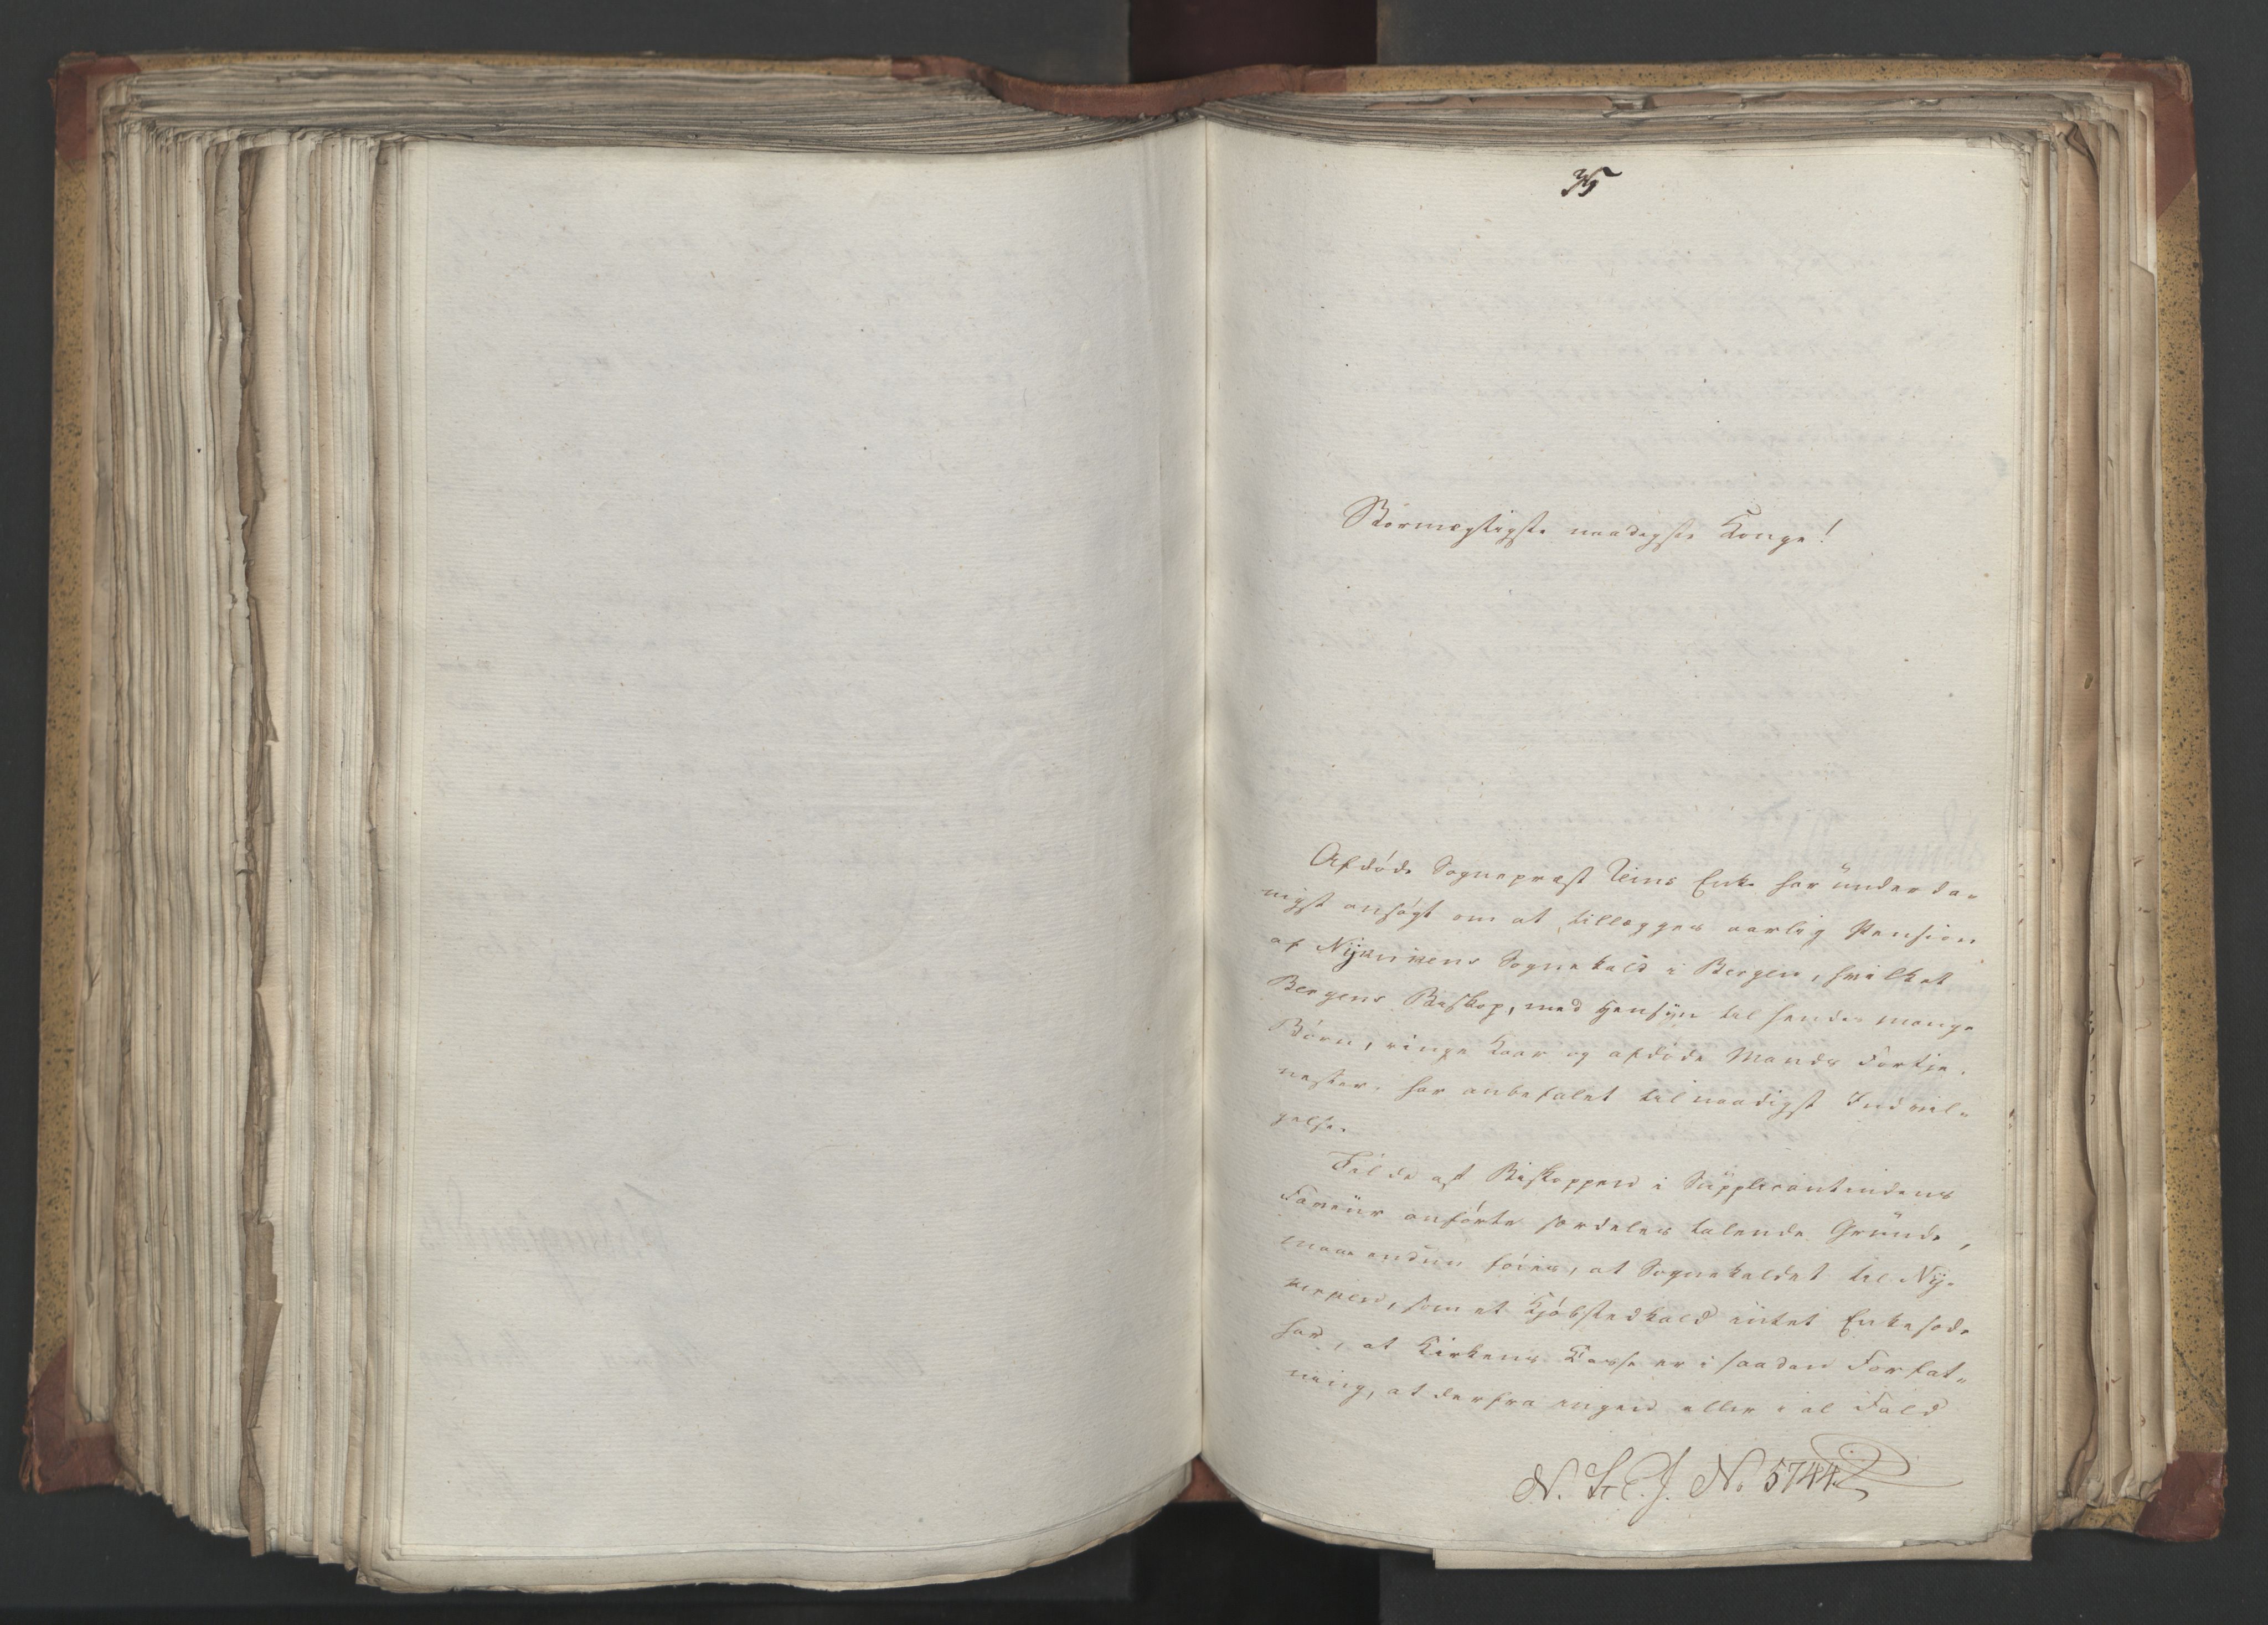 35
Stormægtigste naadigste Konge!
Afdøde Sognepræst Reins Enke har underda-
nigst ansøgt om at tillægges aarlig Pension
af Nykirkens Sognekald i Bergen, hvilket
Bergens Biskop, med Hensyn til hendes mange
Børn, ringe Kaar og afdøde Mands Fortje-
nester har anbefalet til naadigst Indvil-
gelse.
Til de af Biskoppen i Supplicantindens
Faveur anførte særdeles talende Grunde,
maae endnu føies, at Sognekaldet til Ny-
kirken, som et Kjøbstedkald intet Enkesæde
har, at Kirkens Casse er i saadan Forfat-
ning, at derfra ingen eller i al Fald
N. St. C. J. No 5744